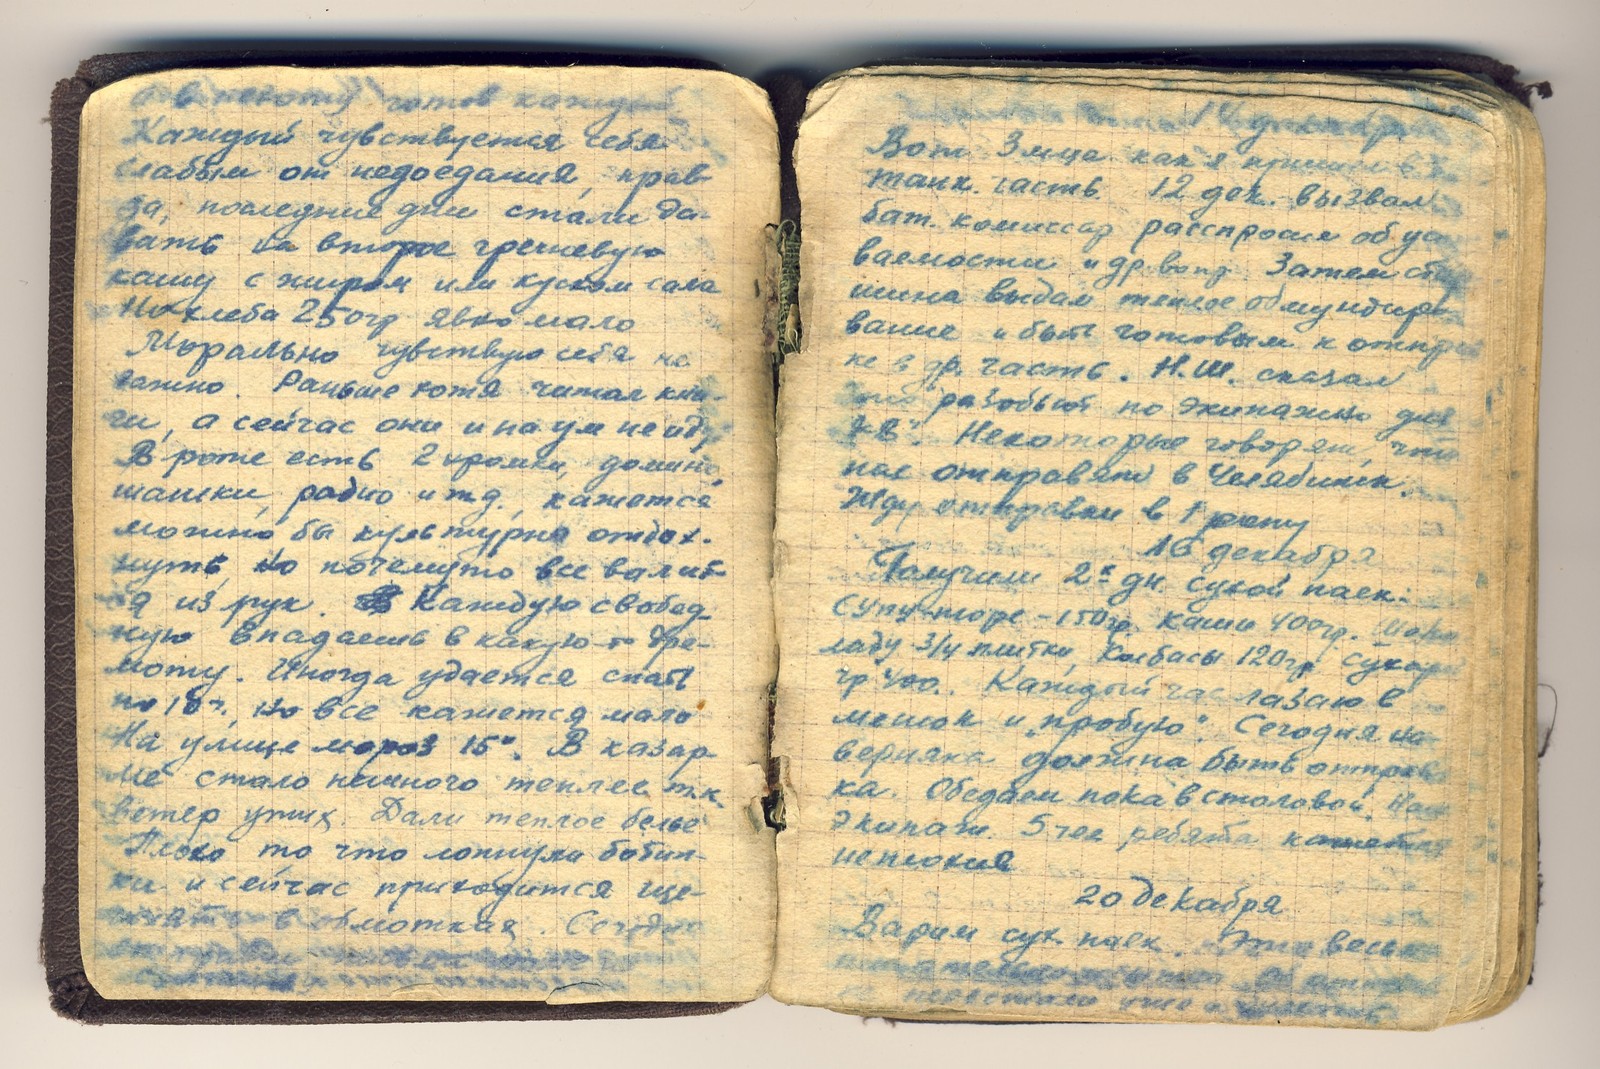 в пехоту готов каждый
Каждый чувствуется себя
слабым от недоедания, прав-
да, последние дни стали да-
вать на второе гречневую
кашу с жиром или куском сала
Но хлеба 250гр явно мало
Морально чувствую себя не
важно. Раньше хотя читал кни-
ги, а сейчас они и на ум не идут
В роте есть 2 домино
шашки, радио и т.д., кажется
можно бы культурно отдох-
нуть, но почемуто все валит-
ся из рук. Каждую свобод-
ную впадаешь в какую-то дре-
моту. Иногда удается спать
по 10ч, но все кажется мало
На улице мороз 15°. В казар-
ме стало немного теплее т.к.
ветер утих. Дали теплое белье
Плохо то что лопнули ботин-
ки и сейчас приходится ще-
в обмотках. Сегодня
14 декабря
Вот 3 м-ца как я пришел в
танк. часть. 12 дек. вызвал
бат. комиссар расспросил об ус
ваемости и др. вопр. Затем стар
шина выдал теплое обмундиро-
вание и быть готовым к отпр
не в др. часть. Н.Ш. сказал
что разобьют по экипажно для
"КВ". Некоторые говорят, что
нас отправят в Челябинск.
Жду отправки в 1 роту
16 декабря
Получили 2х дн. сухой паек:
супу-пюре - 150гр. каши 400гр.
ладу 3/4 плитки, колбасы 120гр, сухари
гр 400. Каждый час лазаю в
мешок и "пробую". Сегодня на-
верняка должна быть отправ-
ка. Обедаем пока в столовой. Наш
экипаж 5 чел ребята кажется
неплохие
20 декабря
Варим сух. паек. Это весь